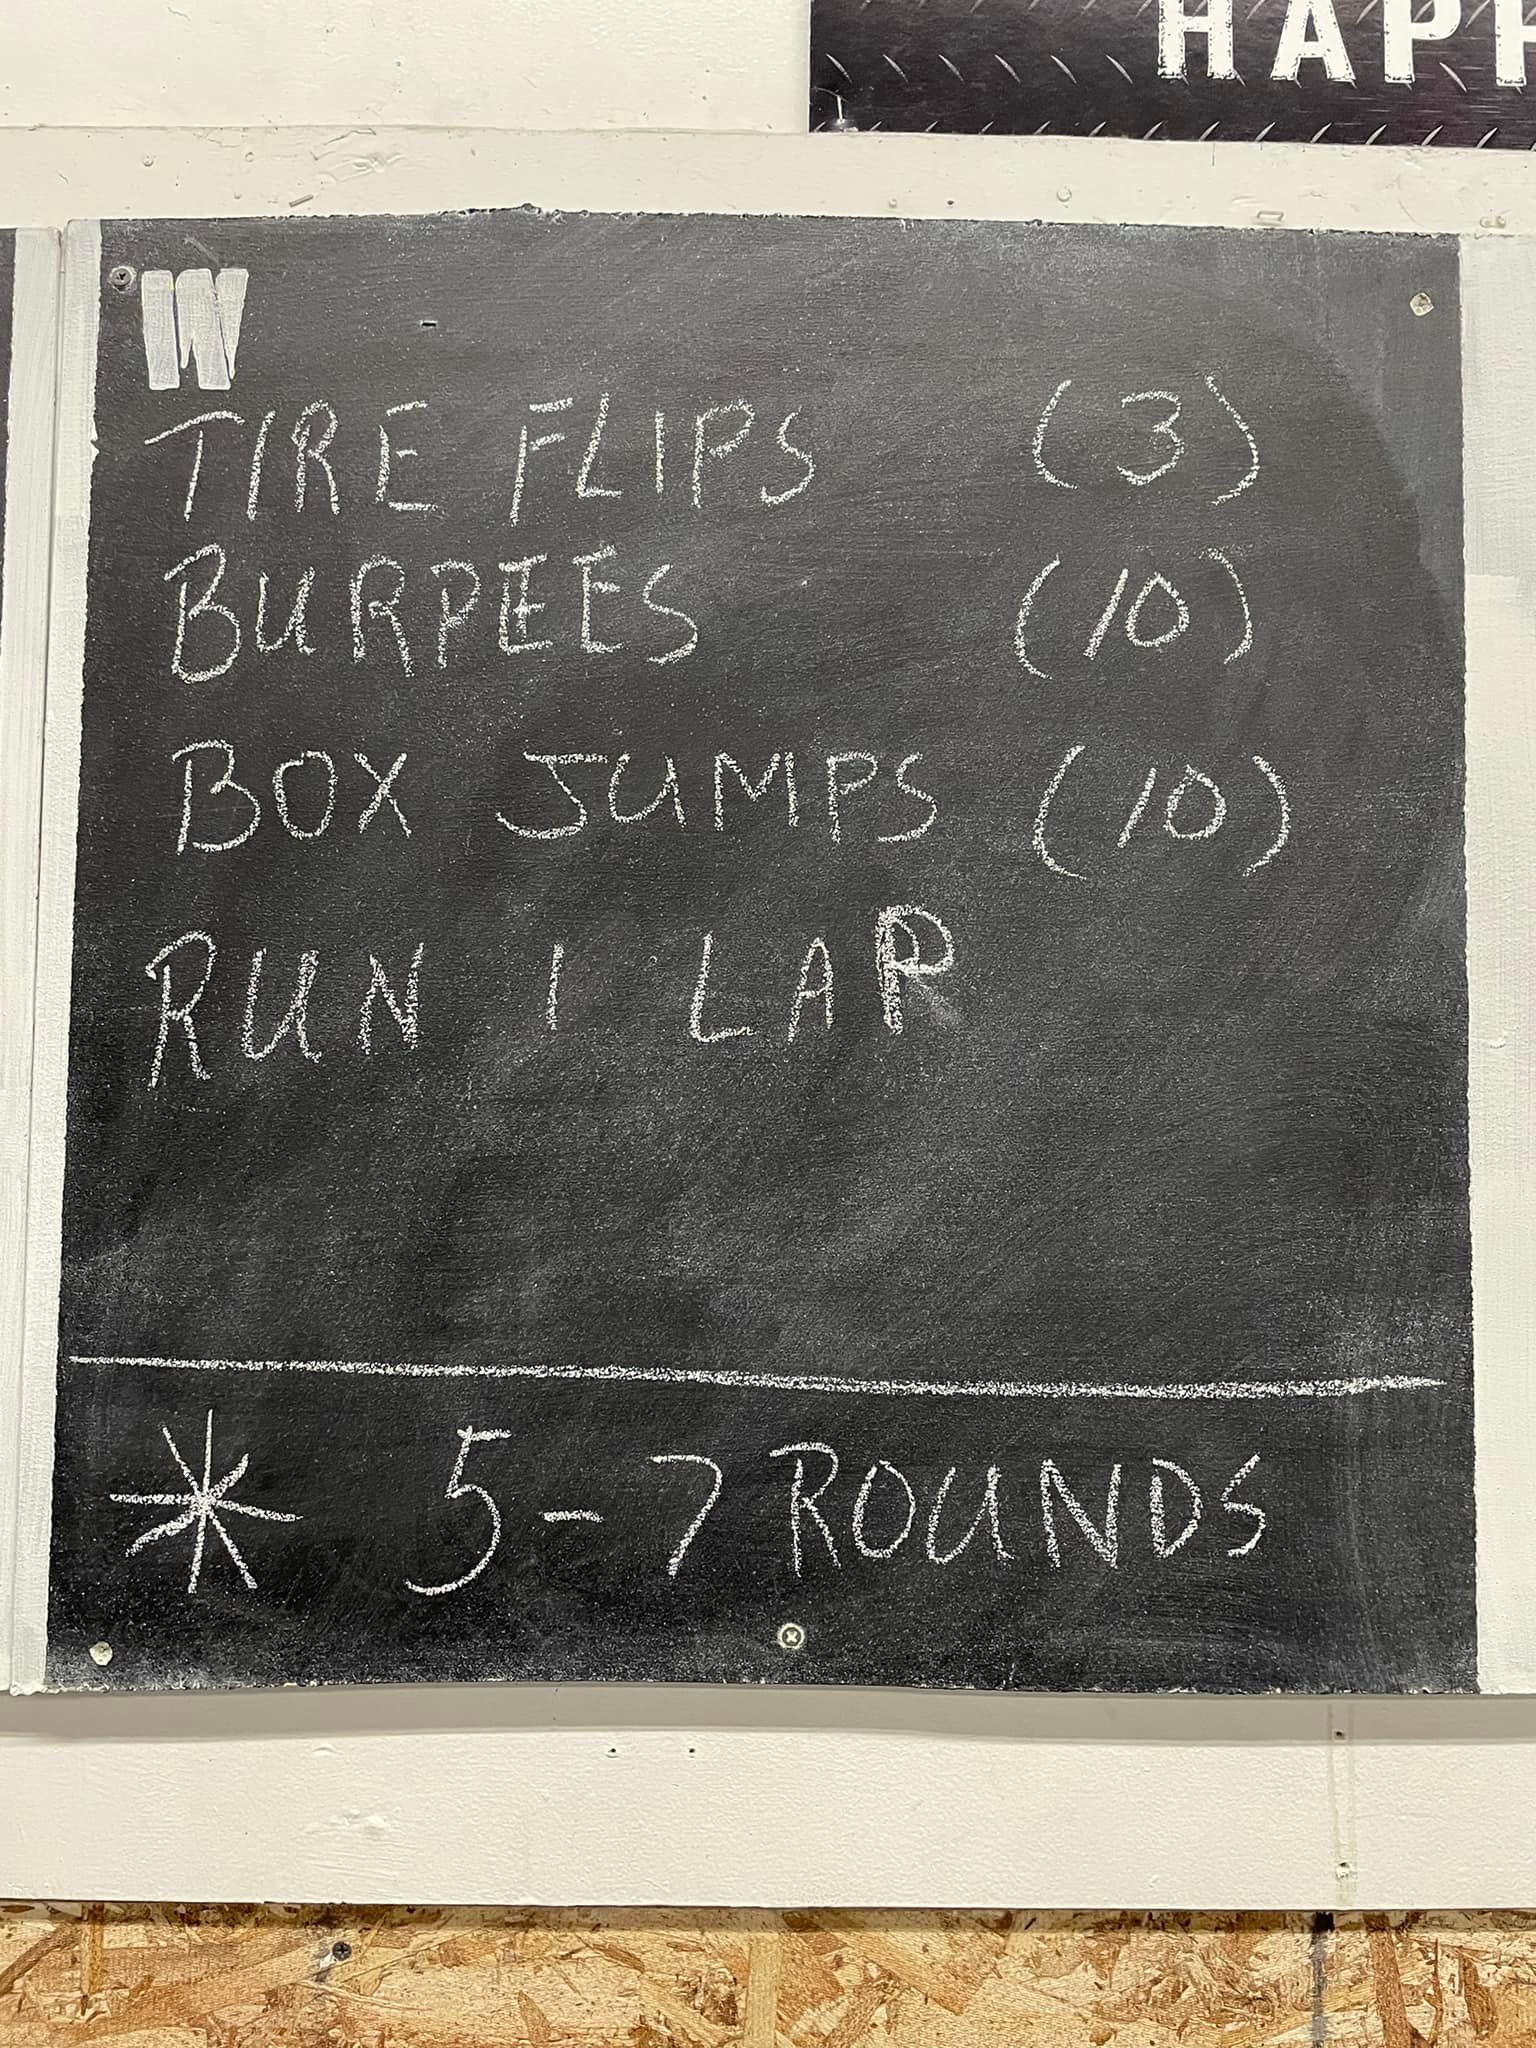 HAPP
W
TIRE FLIPS (3)
BURPEES (10)
BOX JUMPS (10)
RUN 1 LAP
* 5-7 ROUNDS